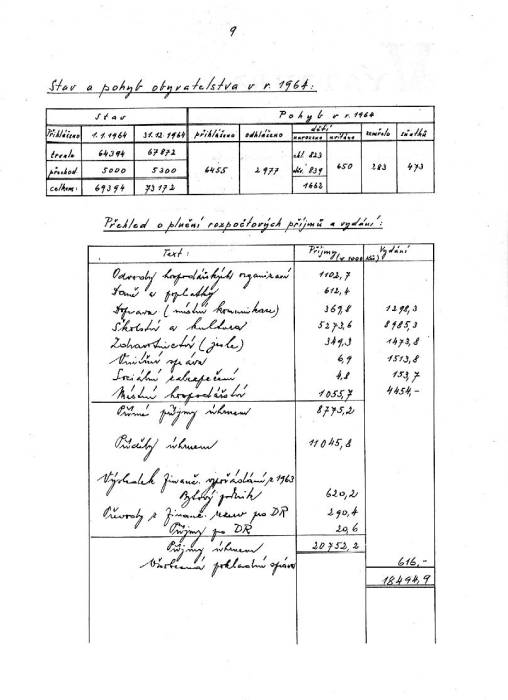 9
Stav a pohyb obyvatelstva v r. 1964:
Stav Pohyb v r. 1964
Přihlášeno 1.1.1964 31.12.1964 přihlášeno odhlášeno děti zemřelo sňatků
narozeno
trvale 64394 67872 6455 2977 chl. 823 650 283 473
přechod. 5000 5300 děv. 839
celkem: 69394 73172 1662
Přehled o plnění rozpočtových příjmů a vydání:
Text: Příjmy (v 1000 Kčs) Vydání
Odvody hospodářských organizací 1102,7
Daně a poplatky 612,4
Doprava (místní komunikace) 369,8 1298,3
Školství a kultura 5273,6 8985,3
Zdravotnictví (jesle) 349,3 1473,8
Vnitřní správa 6,9 1513,8
Sociální zabezpečení 4,8 153,7
Místní hospodářství 1055,7 4454,-
Přímé příjmy úhrnem 8775,2
Příděly úhrnem 11045,8
Výsledek finanč. vypořádání z 1963
Bytový podnik 620,2
Převody z finanč. rezerv po DR 290,4
Příjmy po DR 20,6
Příjmy úhrnem 20752,2
Všeobecná pokladní správa 616,-
18494,9